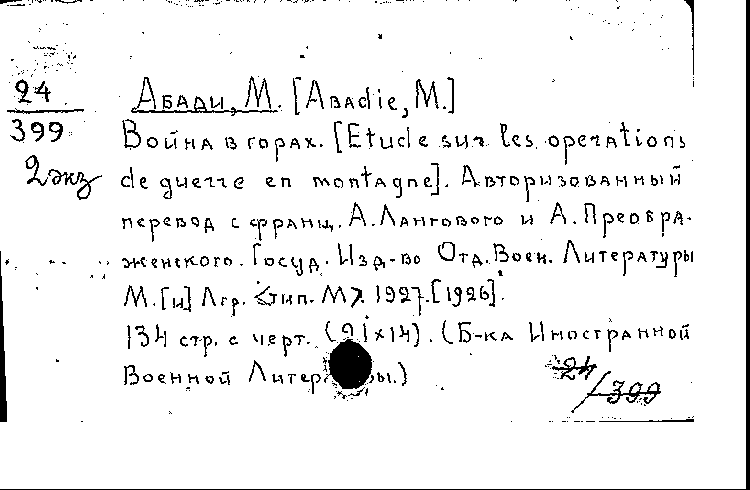 24
399
2 экз
Абади, М. [Abadie, M.]
Война в горах. [Etude sur les operations
de guerre en montagne]. Авторизованный
перевод с франц. А. Лангового и А. Преобра-
женского. Госуд. Изд-во Отд. Воен. Литературы
М. [и] Лгр. тип. М 1927. [1926].
134 стр. с черт. (21х14). (Б-ка Иностранной
Военной Литер ры.)
24/399